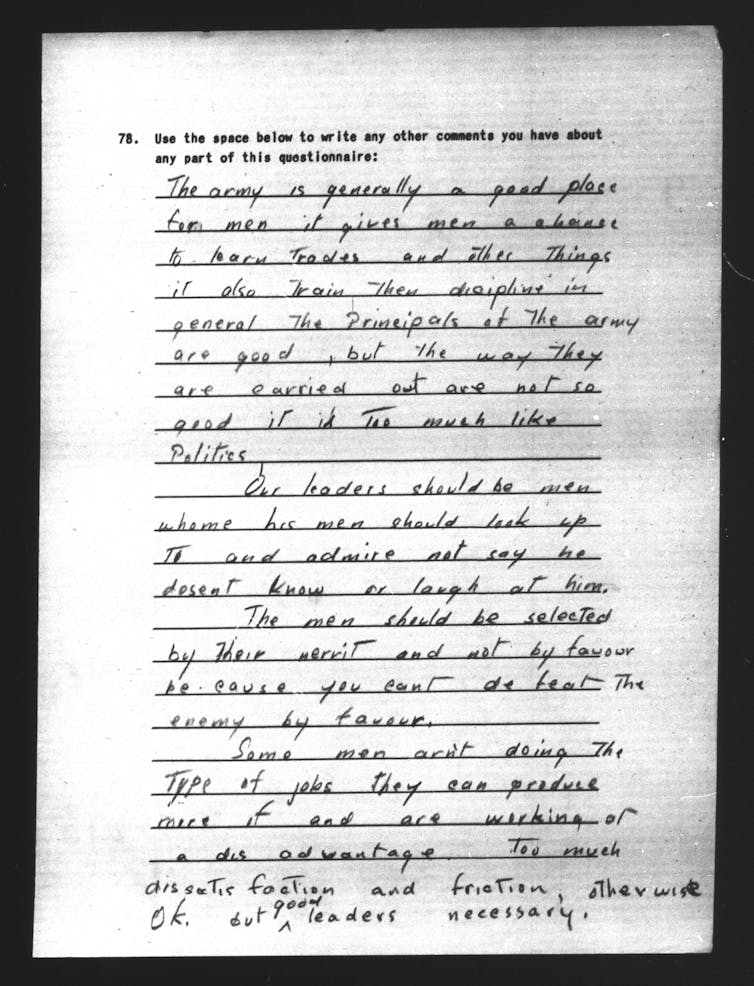 78. Use the space below to write any other comments you have about
any part of this questionnaire:
The army is generally a good place
for men it gives men a chance
to learn Trades and other Things
it also Train Then dicipline in
general The Principals of The army
are good , but the way They
are carried out are not so
good it is Too much like
Politics
Our leaders should be men
whome his men should look up
To and admire not say he
dosent know or laugh at him.
The men should be selected
by Their merrit and not by favour
be cause you cant de feat The
enemy by favour.
Some men arn't doing The
Type of jobs They can produce
more if and are working at
a dis advantage. Too much
dissatis faction and friction, otherwise
OK. but good leaders necessary.